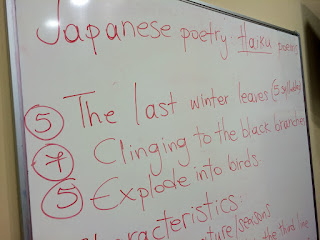 Japanese poetry: Haiku poems
5 The last winter leaves (5 syllables
7 Clinging to the black branches
5 Explode into birds
Characteristics:
nature/seasons
the third line